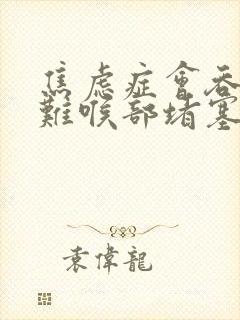 焦虑症會吞
難喉部堵塞
袁偉龍